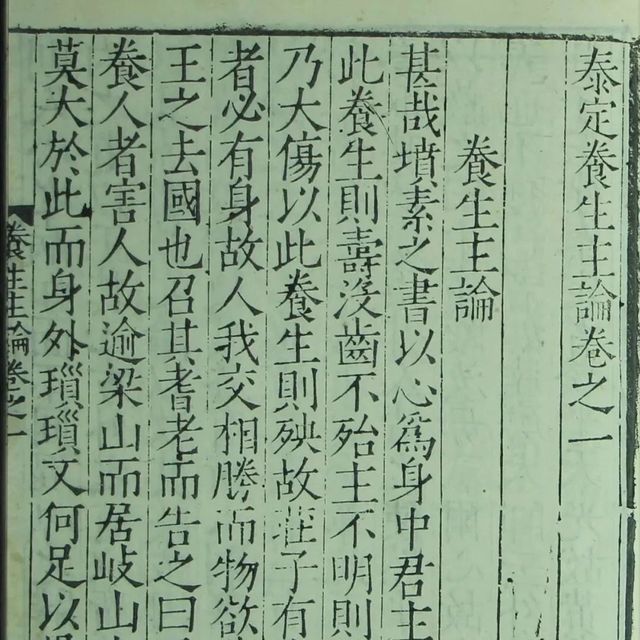 泰定養生主論卷之一
養生主論
甚哉墳素之書以心為身中君主
此養生則壽沒齒不殆主不明則
乃大傷以此養生則殃故莊子有
者必有身故人我交相勝而物欲
王之去國也召其耆老而告之曰
養人者害人故逾梁山而居岐山
莫大於此而身外瑣瑣文何足以
養生主論卷之一